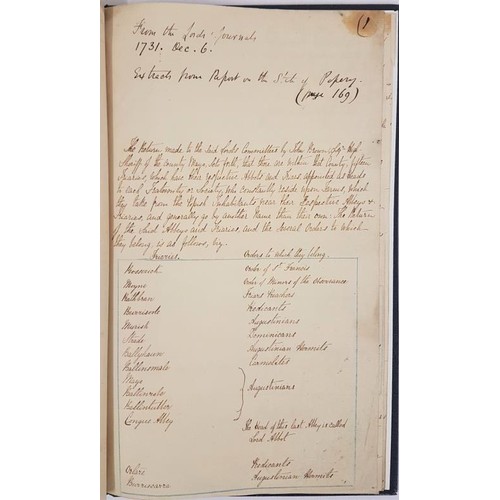 1
From the Lords' Journals
1731. Dec. 6.
Extracts from Report on the State of Popery.
(page 169)
The Return made to the said Lords Committees by John Brown Esqr High
Sheriff of the County Mayo, set forth, that there are within that County, fifteen
Friaries, which have their respective Abbots and Priors appointed as Heads
to each Fraternity or Society, who constantly reside upon Farms, which
they take from the Popish Inhabitants near their Respective Abbeys &
Friaries, and generally go by another Name than their own: The Return
of the Said Abbeys and Friaries, and the several Orders to which
they belong, is as follows, viz.
Friaries Orders to which they belong.
Rosserick Order of St Francis
Moyne Order of Minors of the Observance
Rathbran Friars Preachers
Burrisoole Medicants
Murisk Augustinians
Strade Dominicans
Ballyhaun Augustinian Hermits
Ballinsmale Carmelites
Mayo
Ballinrobe Augustinians
Ballintubber
Congus Abbey The Head of this last Abbey is called
Lord Abbot
Orlare Medicants
Burrisscarra Augustinian Hermits